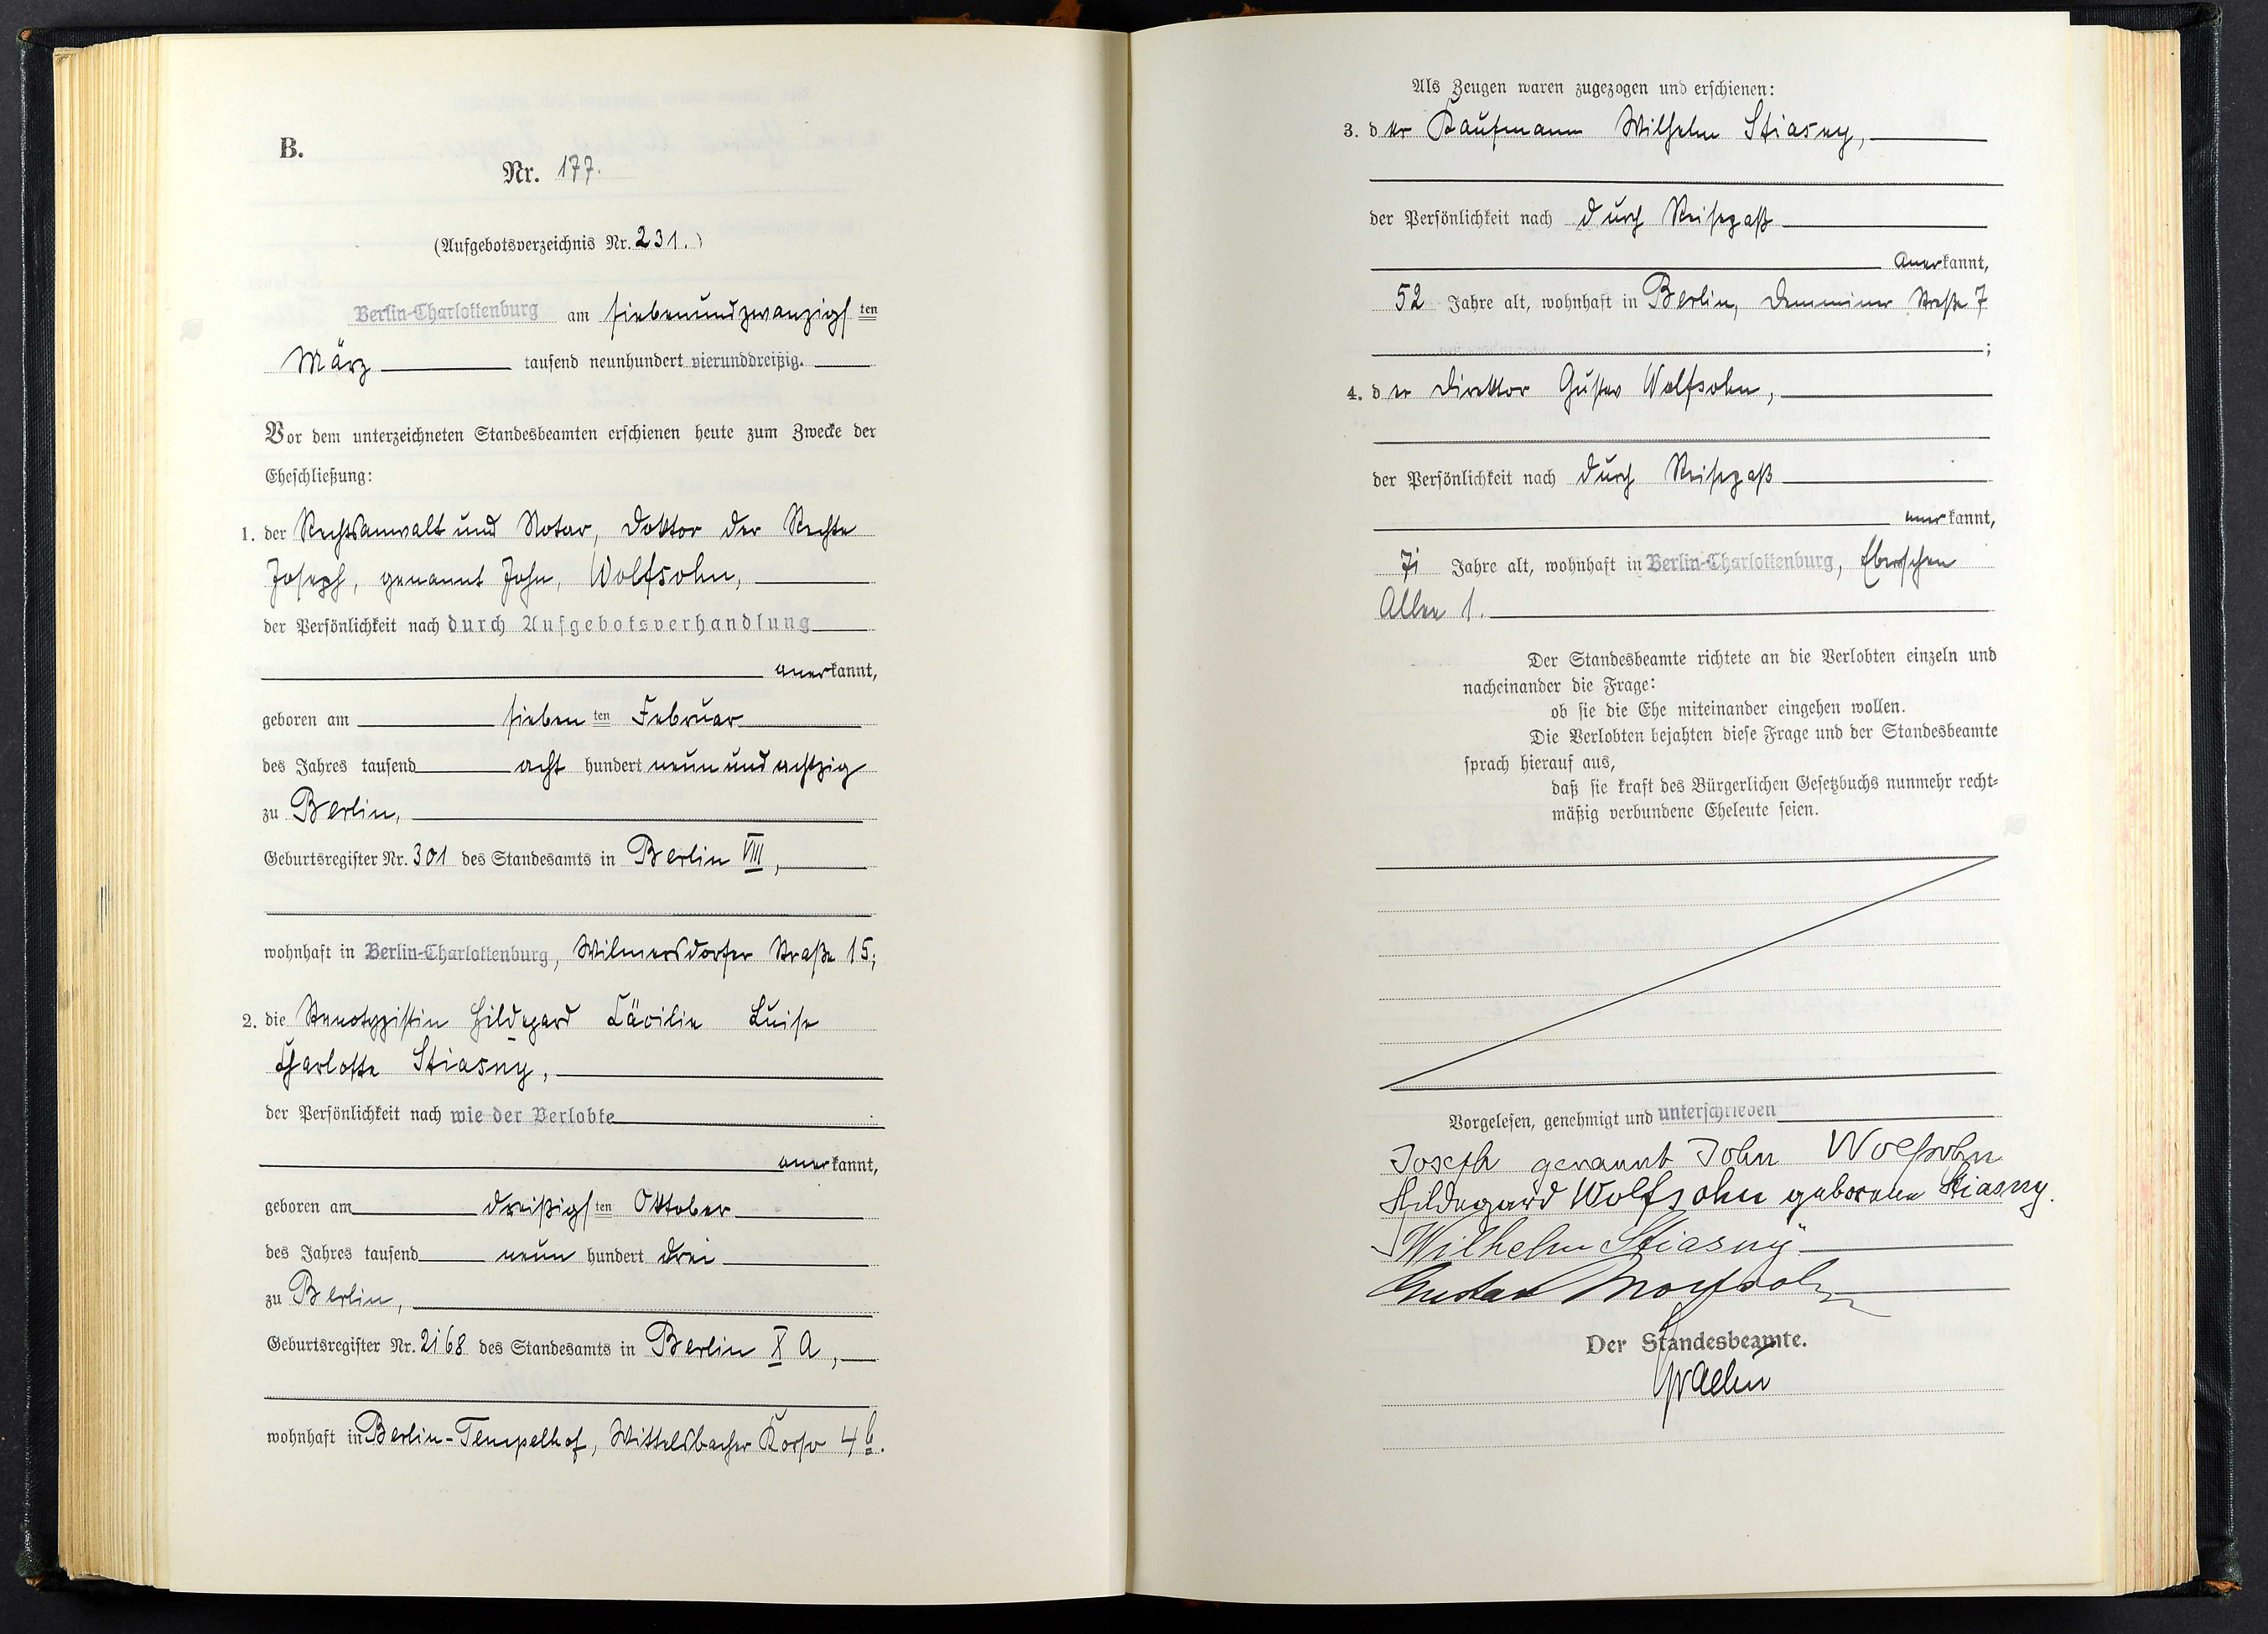 B.
Nr. 177.
(Aufgebotsverzeichnis Nr. 231.)
Berlin-Charlottenburg am siebenundzwanzigsten
März tausend neunhundert vierunddreißig.
Vor dem unterzeichneten Standesbeamten erschienen heute zum Zwecke der
Eheschließung:
1. der Rechtsanwalt und Notar, Doktor der Rechte
Joseph, genannt John, Wolfsohn,
der Persönlichkeit nach durch Aufgebotsverhandlung
anerkannt,
geboren am siebenten Februar
des Jahres tausend acht hundert neunundachtzig
zu Berlin,
Geburtsregister Nr. 301 des Standesamts in Berlin VIII,
wohnhaft in Berlin-Charlottenburg, Wilmersdorfer Straße 15;
2. die Stenotypistin Hildegard Cäcilie Luise
Charlotte Stiasny,
der Persönlichkeit nach wie der Verlobte
anerkannt,
geboren am dreißigsten Oktober
des Jahres tausend neun hundert drei
zu Berlin,
Geburtsregister Nr. 2168 des Standesamts in Berlin X A,
wohnhaft in Berlin-Tempelhof, Wittelsbacher Korso 4b.
Als Zeugen waren zugezogen und erschienen:
3. der Kaufmann Wilhelm Stiasny,
der Persönlichkeit nach durch Reisepaß
anerkannt,
52 Jahre alt, wohnhaft in Berlin, Demminer Straße 7
;
4. der Direktor Gustav Wolfsohn,
der Persönlichkeit nach durch Reisepaß
anerkannt,
71 Jahre alt, wohnhaft in Berlin-Charlottenburg,
Allee 1.
Der Standesbeamte richtete an die Verlobten einzeln und
nacheinander die Frage:
ob sie die Ehe miteinander eingehen wollen.
Die Verlobten bejahten diese Frage und der Standesbeamte
sprach hierauf aus,
daß sie kraft des Bürgerlichen Gesetzbuchs nunmehr recht-
mäßig verbundene Eheleute seien.
Vorgelesen, genehmigt und unterschrieben
Joseph genannt John Wolfsohn
Hildegard Wolfsohn geborene Stiasny.
Wilhelm Stiasny
Gustav Wolfsohn
Der Standesbeamte.